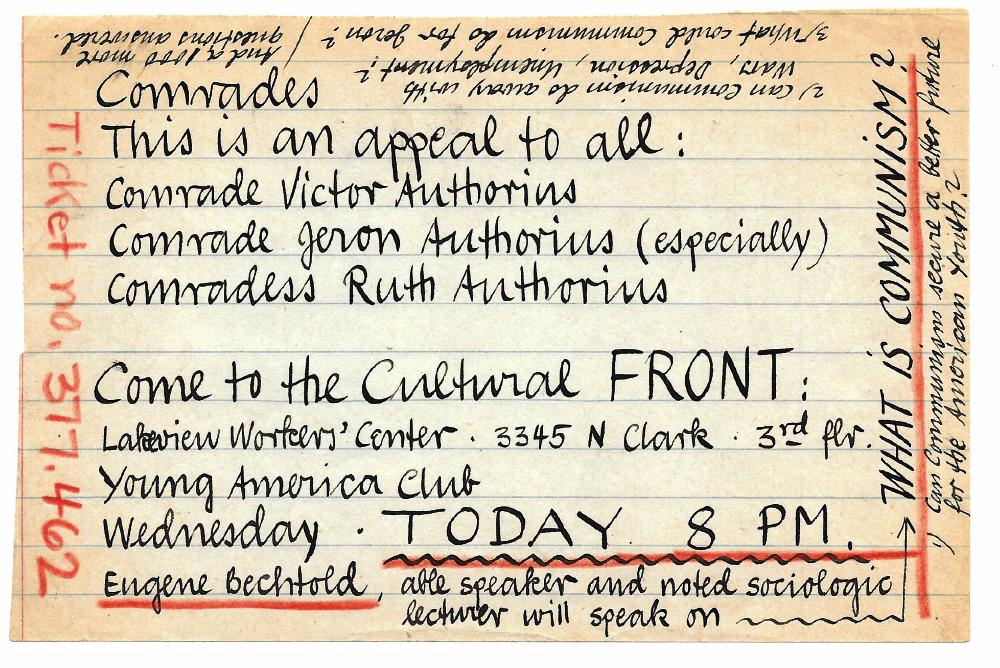 Comrades
This is an appeal to all :
Comrade Victor Authorius
Comrade Jeron Authorius (especially)
Comradess Ruth Authorius
Come to the Cultural FRONT :
Lakeview Workers' Center · 3345 N Clark · 3rd flr.
Young America Club
Wednesday · TODAY 8 PM.
Eugene Bechtold, able speaker and noted sociologic
lecturer will speak on
WHAT IS COMMUNISM?
1) Can Communism secure a better future
for the American Youth?
2) Can Communism do away with
Wars, Depression, Unemployment?
3) What could Communism do for Jeron?
And a 1000 more
questions answered.
Ticket no. 377.462